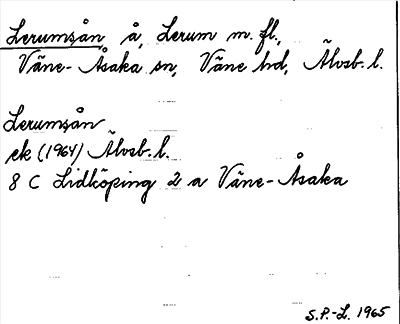 Lerumsån, å, Lerum m. fl.,
Väne-Åsaka sn, Väne hd, Älvsb. l.
Lerumsån
ek (1964) Älvsb. l.
8 C Lidköping 2 a Väne-Åsaka
S.P.-L. 1965